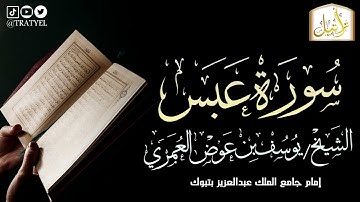 @TRATYEL
سُورَة عَبَسَ
الشيخ/يوسف بن عوض العمري
إمام جامع الملك عبدالعزيز بتبوك